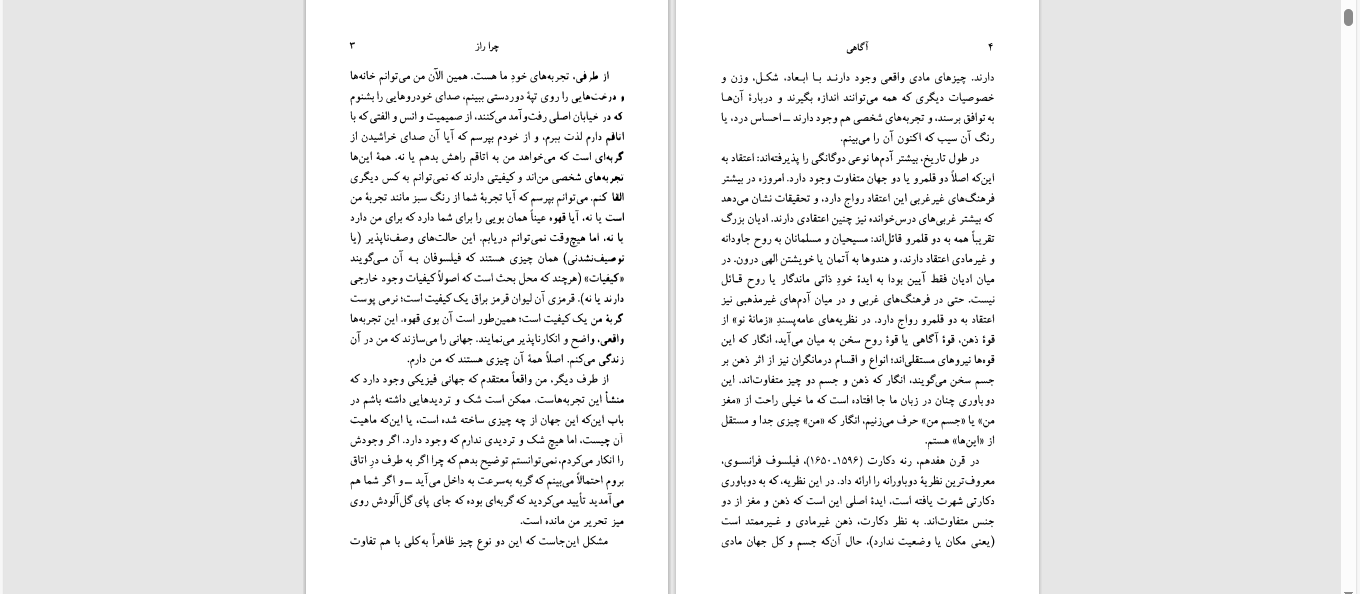 چرا راز ۳
از طرفی، تجربه‌های خودِ ما هست. همین الآن من می‌توانم خانه‌ها
و درخت‌هایی را روی تپهٔ دوردستی ببینم، صدای خودروهایی را بشنوم
که در خیابان اصلی رفت‌وآمد می‌کنند، از صمیمیت و انس و الفتی که با
اتاقم دارم لذت ببرم، و از خودم بپرسم که آیا آن صدای خراشیدن از
گربه‌ای است که می‌خواهد من به اتاقم راهش بدهم یا نه. همهٔ این‌ها
تجربه‌های شخصی من‌اند و کیفیتی دارند که نمی‌توانم به کس دیگری
القا کنم. می‌توانم بپرسم که آیا تجربهٔ شما از رنگ سبز مانند تجربهٔ من
است یا نه، آیا قهوه عیناً همان بویی را برای شما دارد که برای من دارد
یا نه، اما هیچ‌وقت نمی‌توانم دریابم. این حالت‌های وصف‌ناپذیر (یا
توصیف‌نشدنی) همان چیزی هستند که فیلسوفان به آن می‌گویند
«کیفیات» (هرچند که محل بحث است که اصولاً کیفیات وجود خارجی
دارند یا نه). قرمزی آن لیوان قرمز براق یک کیفیت است؛ نرمی پوست
گربهٔ من یک کیفیت است؛ همین‌طور است آن بوی قهوه. این تجربه‌ها
واقعی، واضح و انکارناپذیر می‌نمایند. جهانی را می‌سازند که من در آن
زندگی می‌کنم. اصلاً همهٔ آن چیزی هستند که من دارم.
از طرف دیگر، من واقعاً معتقدم که جهانی فیزیکی وجود دارد که
منشأ این تجربه‌هاست. ممکن است شک و تردیدهایی داشته باشم در
باب این‌که این جهان از چه چیزی ساخته شده است، یا این‌که ماهیت
آن چیست، اما هیچ شک و تردیدی ندارم که وجود دارد. اگر وجودش
را انکار می‌کردم، نمی‌توانستم توضیح بدهم که چرا اگر به طرف درِ اتاق
بروم احتمالاً می‌بینم که گربه به‌سرعت به داخل می‌آید ــ و اگر شما هم
می‌آمدید تأیید می‌کردید که گربه‌ای بوده که جای پای گل‌آلودش روی
میز تحریر من مانده است.
مشکل این‌جاست که این دو نوع چیز ظاهراً به‌کلی با هم تفاوت
۴ آگاهی
دارند. چیزهای مادی واقعی وجود دارند با ابعاد، شکل، وزن و
خصوصیات دیگری که همه می‌توانند اندازه بگیرند و دربارهٔ آن‌ها
به توافق برسند، و تجربه‌های شخصی هم وجود دارند ــ احساس درد، یا
رنگ آن سیب که اکنون آن را می‌بینم.
در طول تاریخ، بیشتر آدم‌ها نوعی دوگانگی را پذیرفته‌اند: اعتقاد به
این‌که اصلاً دو قلمرو یا دو جهان متفاوت وجود دارد. امروزه در بیشتر
فرهنگ‌های غیرغربی این اعتقاد رواج دارد، و تحقیقات نشان می‌دهد
که بیشتر غربی‌های درس‌خوانده نیز چنین اعتقادی دارند. ادیان بزرگ
تقریباً همه به دو قلمرو قائل‌اند: مسیحیان و مسلمانان به روح جاودانه
و غیرمادی اعتقاد دارند، و هندوها به آتمان یا خویشتن الهی درون. در
میان ادیان فقط آیین بودا به ایدهٔ خودِ ذاتی ماندگار یا روح قائل
نیست. حتی در فرهنگ‌های غربی و در میان آدم‌های غیرمذهبی نیز
اعتقاد به دو قلمرو رواج دارد. در نظریه‌های عامه‌پسندِ «زمانهٔ نو» از
قوهٔ ذهن، قوهٔ آگاهی یا قوهٔ روح سخن به میان می‌آید، انگار که این
قوه‌ها نیروهای مستقلی‌اند؛ انواع و اقسام درمانگران نیز از اثر ذهن بر
جسم سخن می‌گویند، انگار که ذهن و جسم دو چیز متفاوت‌اند. این
دوباوری چنان در زبان ما جا افتاده است که ما خیلی راحت از «مغز
من» یا «جسم من» حرف می‌زنیم، انگار که «من» چیزی جدا و مستقل
از «این‌ها» هستم.
در قرن هفدهم، رنه دکارت (۱۵۹۶ـ۱۶۵۰)، فیلسوف فرانسوی،
معروف‌ترین نظریهٔ دوباورانه را ارائه داد. در این نظریه، که به دوباوری
دکارتی شهرت یافته است، ایدهٔ اصلی این است که ذهن و مغز از دو
جنس متفاوت‌اند. به نظر دکارت، ذهن غیرمادی و غیرممتد است
(یعنی مکان یا وضعیت ندارد)، حال آن‌که جسم و کل جهان مادی